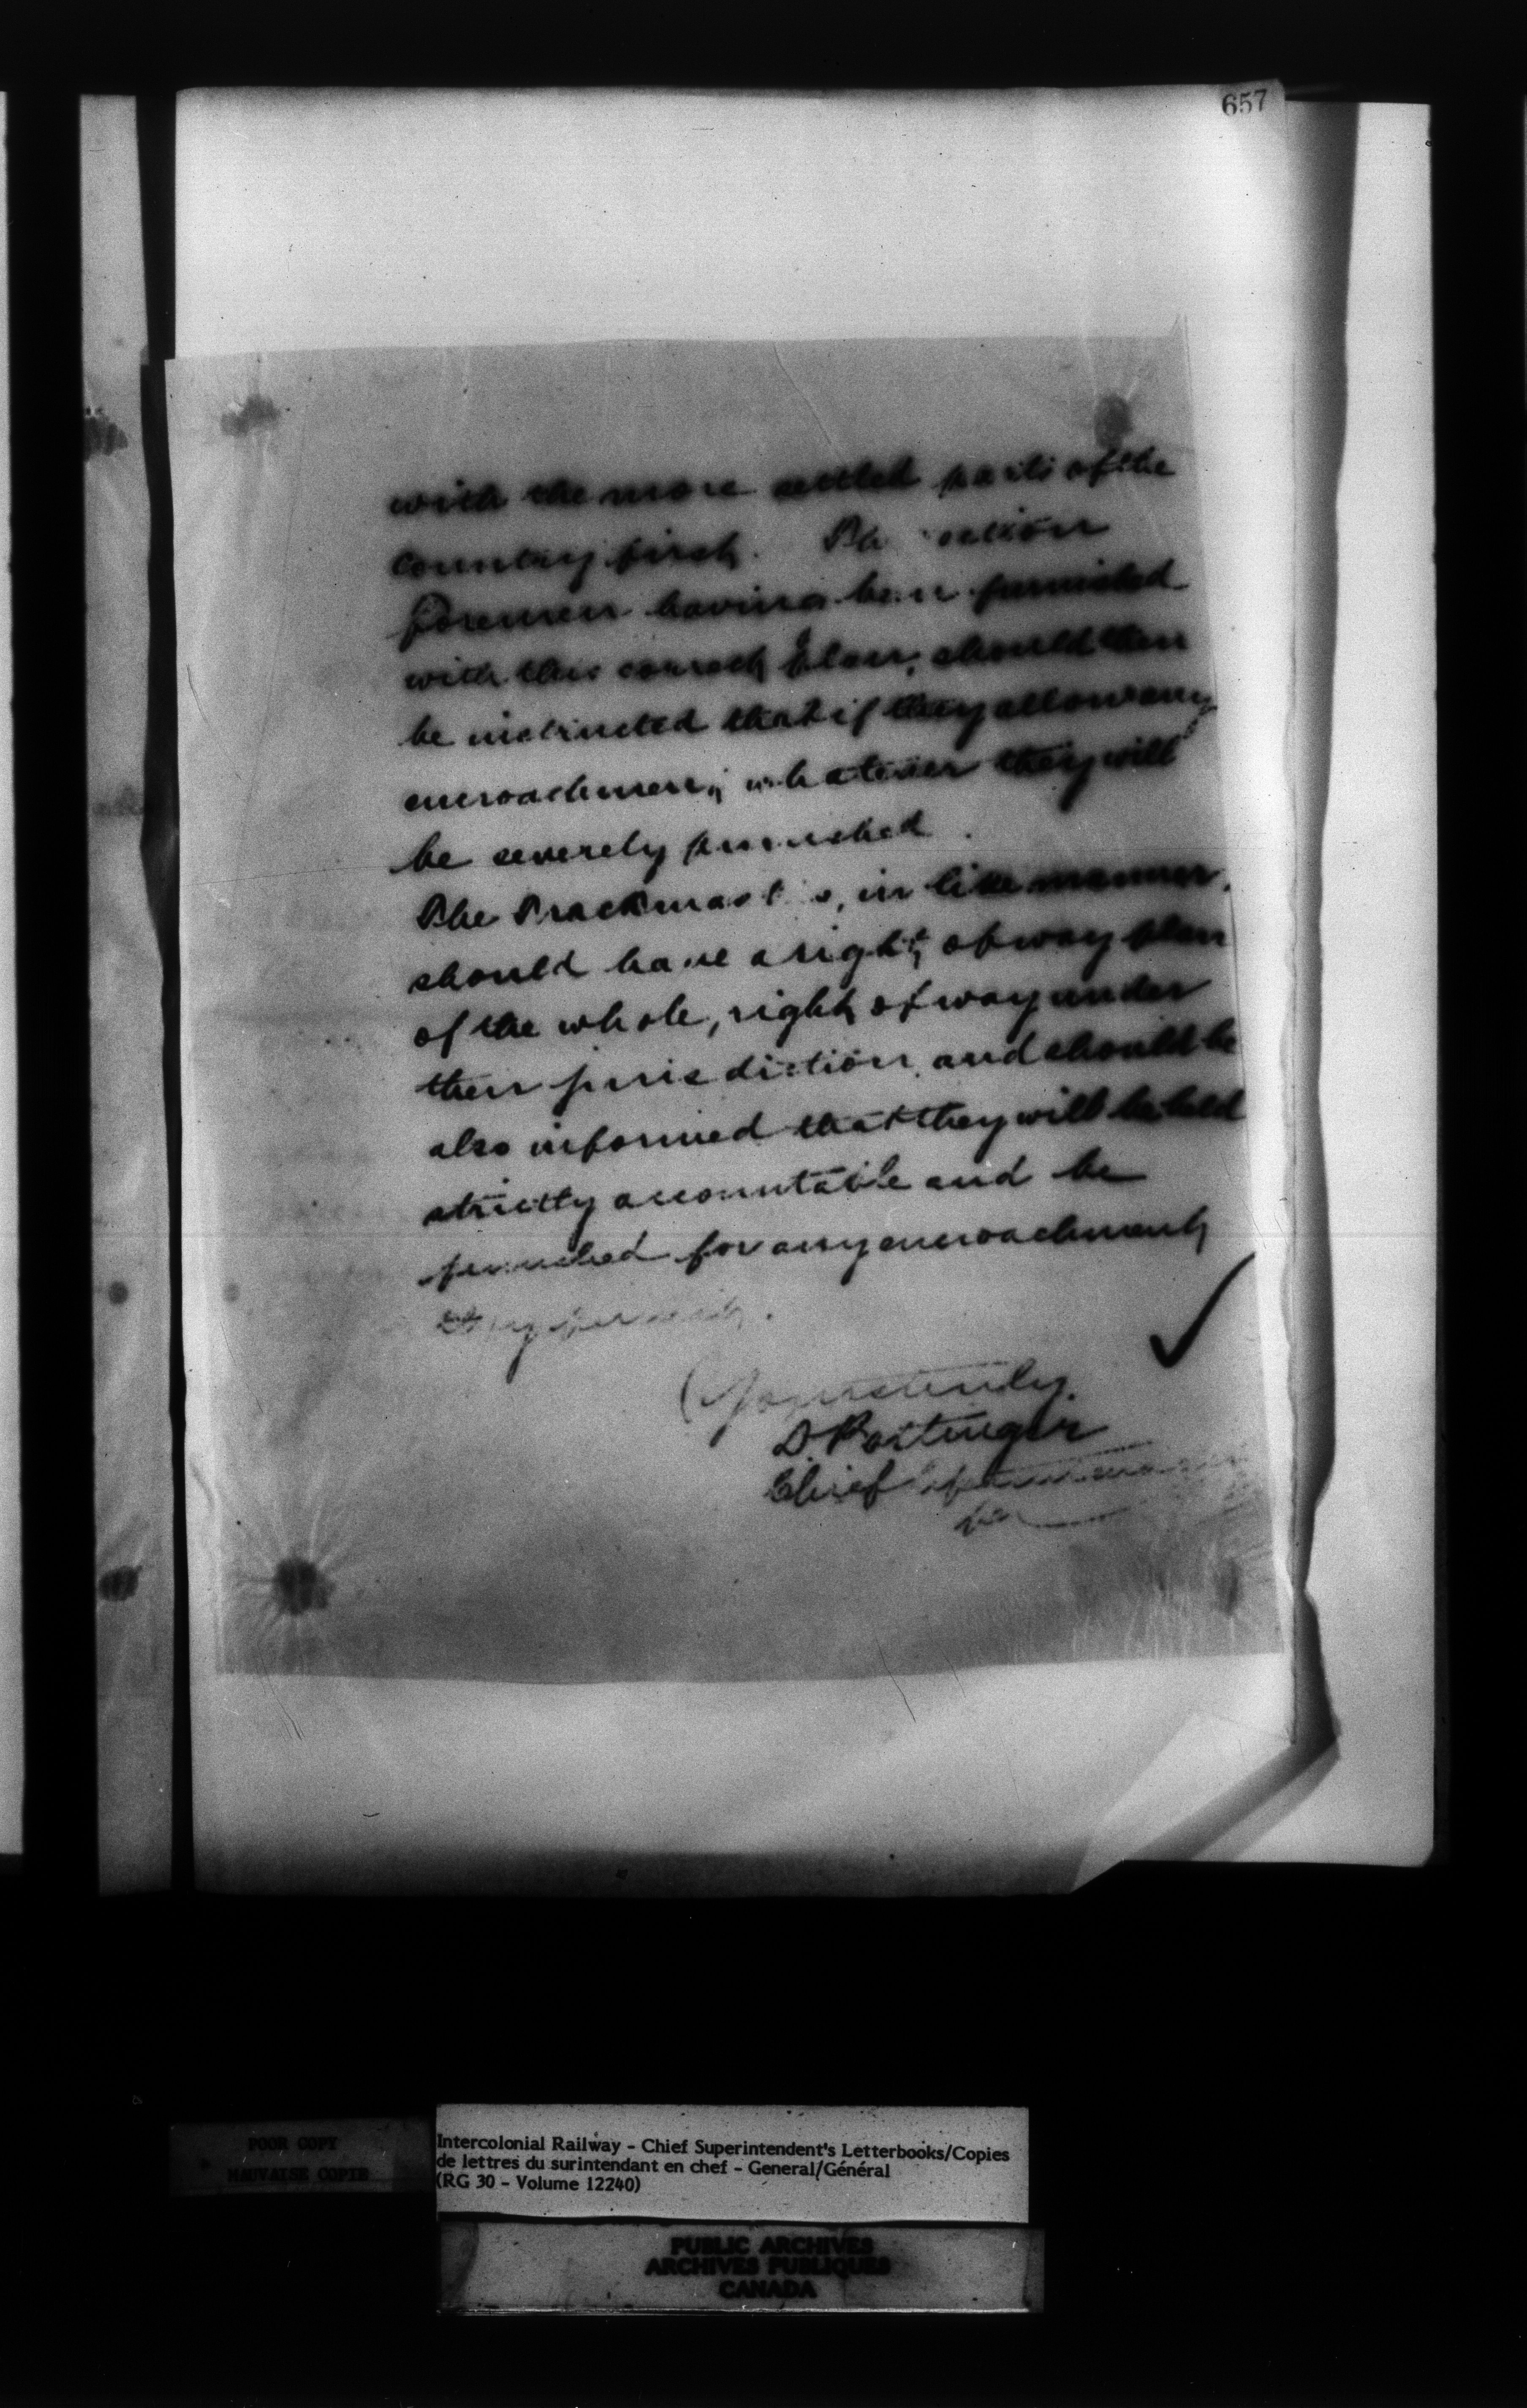 657
with the more settled parts of the
country first. The section
foremen having been furnished
with this correct plan, should then
be instructed that if they allow any
encroachment whatever they will
be severely punished.
The Trackmasters, in like manner,
should have a right of way plan
of the whole, right of way under
their jurisdiction, and should be
also informed that they will be held
strictly accountable and be
punished for any encroachment
they permit.
Yours truly,
D. Pottinger
Chief Superintendent
POOR COPY
MAUVAISE COPIE
Intercolonial Railway - Chief Superintendent's Letterbooks/Copies
de lettres du surintendant en chef - General/Général
(RG 30 - Volume 12240)
PUBLIC ARCHIVES
ARCHIVES PUBLIQUES
CANADA